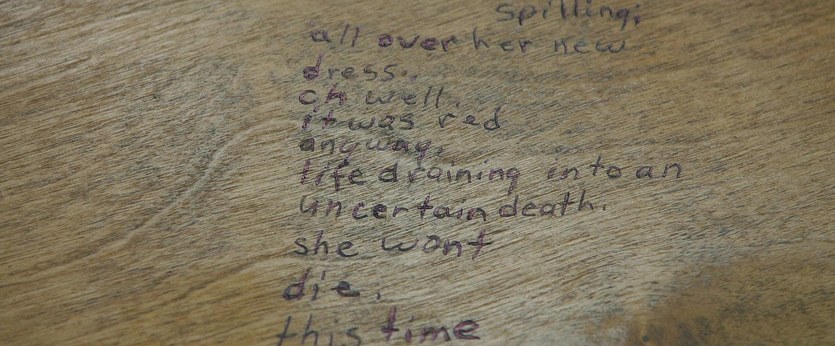 spilling;
all over her new
dress..
oh well.
it was red
anyway.
life draining into an
uncertain death.
she wont
die.
this time